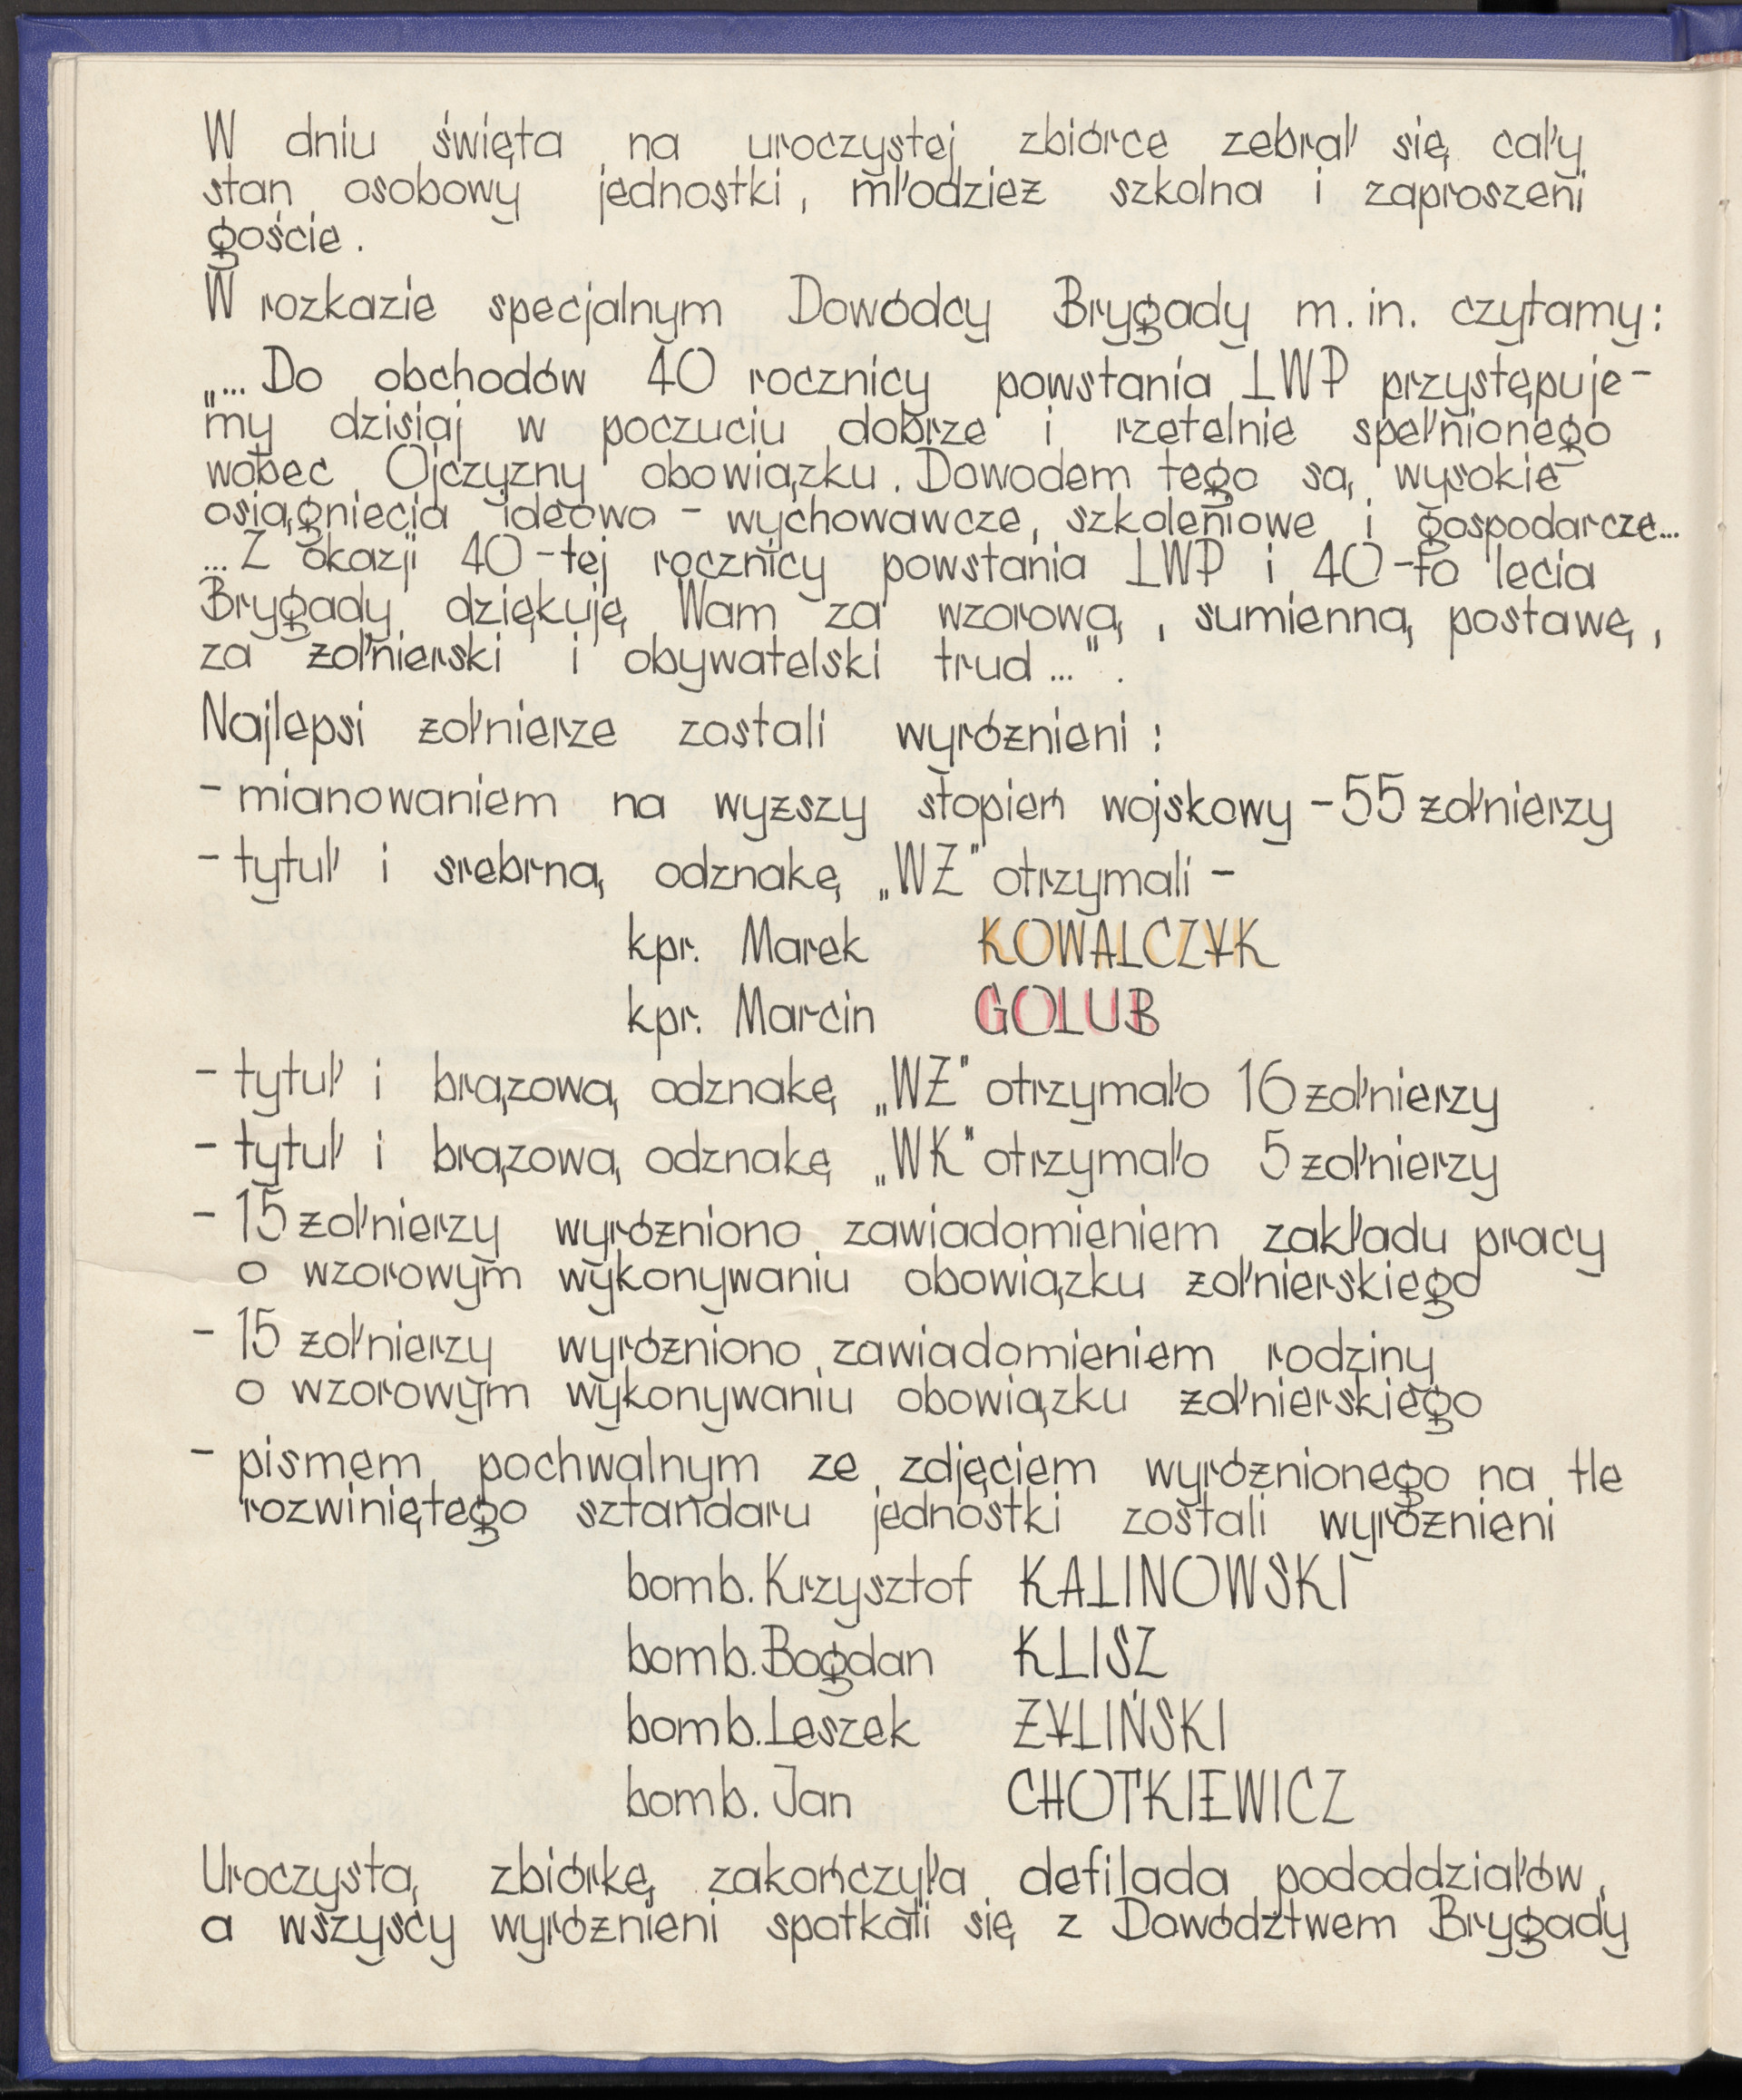 W dniu święta na uroczystej zbiórce zebrał się cały
stan osobowy jednostki, młodzież szkolna i zaproszeni
goście.
W rozkazie specjalnym Dowódcy Brygady m.in. czytamy:
„... Do obchodów 40 rocznicy powstania LWP przystępuje-
my dzisiaj w poczuciu dobrze i rzetelnie spełnionego
wobec Ojczyzny obowiązku. Dowodem tego są wysokie
osiągniecia ideowo - wychowawcze, szkoleniowe i gospodarcze...
... Z okazji 40-tej rocznicy powstania LWP i 40-to lecia
Brygady dziękuję Wam za wzorową, sumienną postawę,
za żołnierski i obywatelski trud ...".
Najlepsi żołnierze zostali wyróżnieni:
- mianowaniem na wyższy stopień wojskowy - 55 żołnierzy
- tytuł i srebrną odznakę „WŻ" otrzymali -
kpr. Marek KOWALCZYK
kpr. Marcin GOLUB
- tytuł i brązową odznakę „WŻ" otrzymało 16 żołnierzy
- tytuł i brązową odznakę „WK" otrzymało 5 żołnierzy
- 15 żołnierzy wyróżniono zawiadomieniem zakładu pracy
o wzorowym wykonywaniu obowiązku żołnierskiego
- 15 żołnierzy wyróżniono zawiadomieniem rodziny
o wzorowym wykonywaniu obowiązku żołnierskiego
- pismem pochwalnym ze zdjęciem wyróżnionego na tle
rozwiniętego sztandaru jednostki zostali wyróżnieni
bomb. Krzysztof KALINOWSKI
bomb. Bogdan KLISZ
bomb. Leszek ŻYLIŃSKI
bomb. Jan CHOTKIEWICZ
Uroczystą zbiórkę zakończyła defilada pododdziałów,
a wszyscy wyróżnieni spotkali się z Dowództwem Brygady